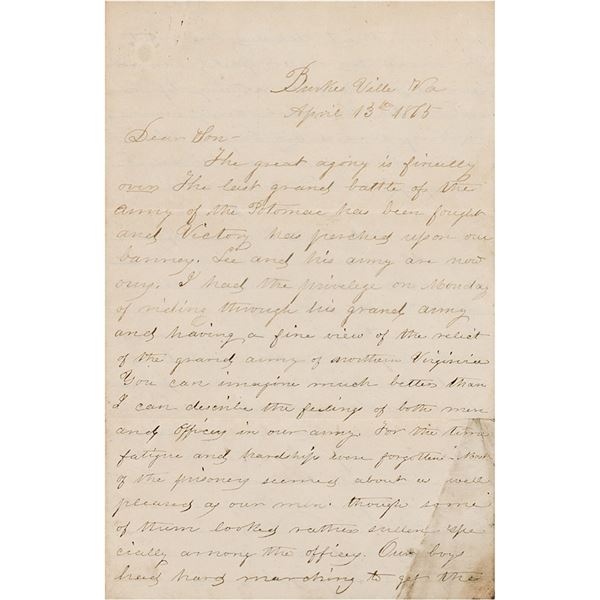 Burkes Ville Va
April 13th 1865
Dear Son-
The great agony is finally
over The last grand battle of the
army of the Potomac has been fought
and Victory has perched upon our
banners. Lee and his army are now
ours. I had the privilege on Monday
of riding through his grand army
and having a fine view of the relict
of the grand army of northern Virginia
You can imagine much better than
I can describe the feelings of both men
and Officers in our army. For the time
fatigue and hardship were forgotten - Most
of the prisoners seemed about as well
pleased as our men. though some
of them looked rather sullen spe
cially among the officers. Our boys
had hard marching to get the